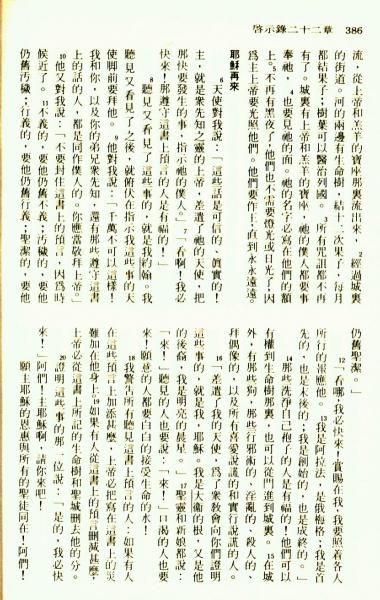 啓示錄二十二章　386
流，從上帝和羔羊的寶座那裏流出來，2經過城裏
的街道。河的兩邊有生命樹，結十二次果子，每月
都結果子；樹葉可以醫治列國。3所有咒詛都不再
有了。城裏有上帝和羔羊的寶座，祂的僕人都要事
奉祂，4也要見祂的面。祂的名字必寫在他們的額
上。5不再有黑夜了，他們也不需要燈光或日光了，因
爲主上帝要光照他們。他們要作王，直到永永遠遠。
耶穌再來
6天使對我說：「這些話是可信的、眞實的！
主，就是衆先知之靈的上帝，差遣了祂的天使，把
那快要發生的事，指示祂的僕人。」7「看啊！我必
快來！那遵守這書上預言的人是有福的！」
8聽見又看見了這些事的，就是我約翰。我
聽見又看見了之後，就俯伏在指示我這些事的天
使脚前要拜他。9他對我說：「千萬不可以這樣！
我和你，以及你的弟兄衆先知，還有那些遵守這書
上的話的人，都是同作僕人的。你應當敬拜上帝。」
10他又對我說：「不要封住這書上的預言，因爲時
候近了。11不義的，要他仍舊不義；汚穢的，要他
仍舊汚穢；行義的，要他仍舊行義；聖潔的，要他
仍舊聖潔。」
12「看哪，我必快來！賞賜在我，我要照着各人
所行的報應他。13我是阿拉法，是俄梅格；我是首
先的，也是末後的；我是創始的，也是成終的。」
14那些洗淨自己袍子的人是有福的！他們可以
有權到生命樹那裏，也可以從門進到城裏。15在城
外，有那些狗，那些行邪術的、淫亂的、殺人的、
拜偶像的，以及所有喜愛說謊的和實行說謊的人。
16「差遣了我的天使，爲了衆敎會向你們證明
這些事的，就是我，耶穌。我是大衞的根，又是他
的後裔，我是明亮的晨星。」17聖靈和新娘都說：
「來！」聽見的人，也要說：「來！」口渴的人也要
來！願意的人都要白白的接受生命的水！
18我警告所有聽見這書上的預言的人：如果有人
在這些預言上加添甚麼，上帝必把寫在這書上的災
難加在他身上。19如果有人從這書上的預言刪減甚麼，
上帝必從這書上所記的生命樹和聖城刪去他的分。
20證明這些事的那一位說：「是的，我必快
來！」阿們！主耶穌啊，請你來吧！
願主耶穌的恩惠與所有的聖徒同在！阿們！